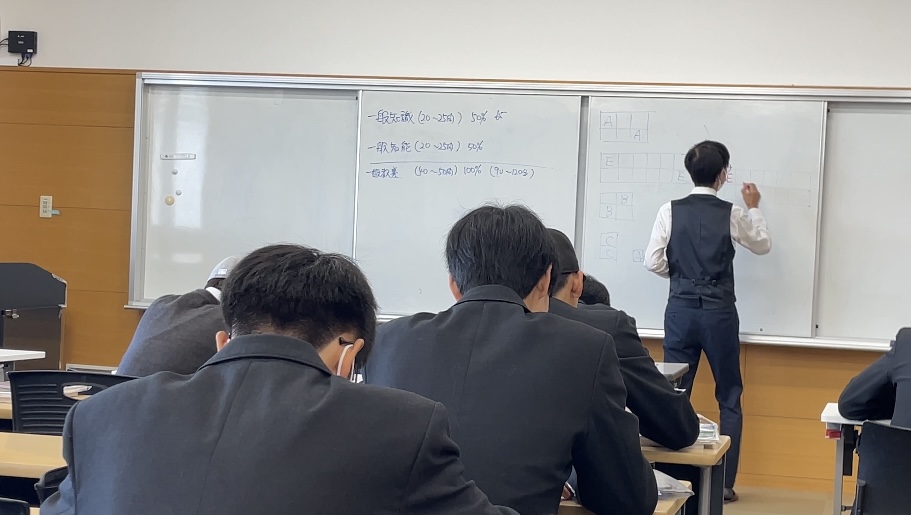 一般知識 (20~25問) 50%
一般知能 (20~25問) 50%
一般教養 (40~50問) 100% (90~120分)
A
A
E
E
E
B
B
C
C